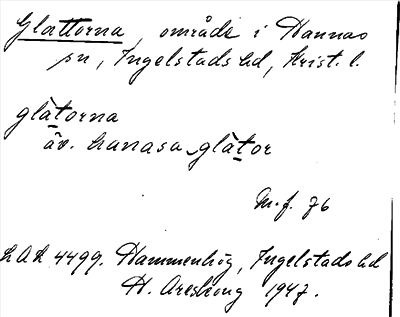 Glattorna, område i Hannas
sn, Ingelstads hd, Krist. l.
glàtorna
äv. hanasa glàtor
M.f. 76
LAL 4499. Hammenhög, Ingelstads hd
H. Areskoug 1947.